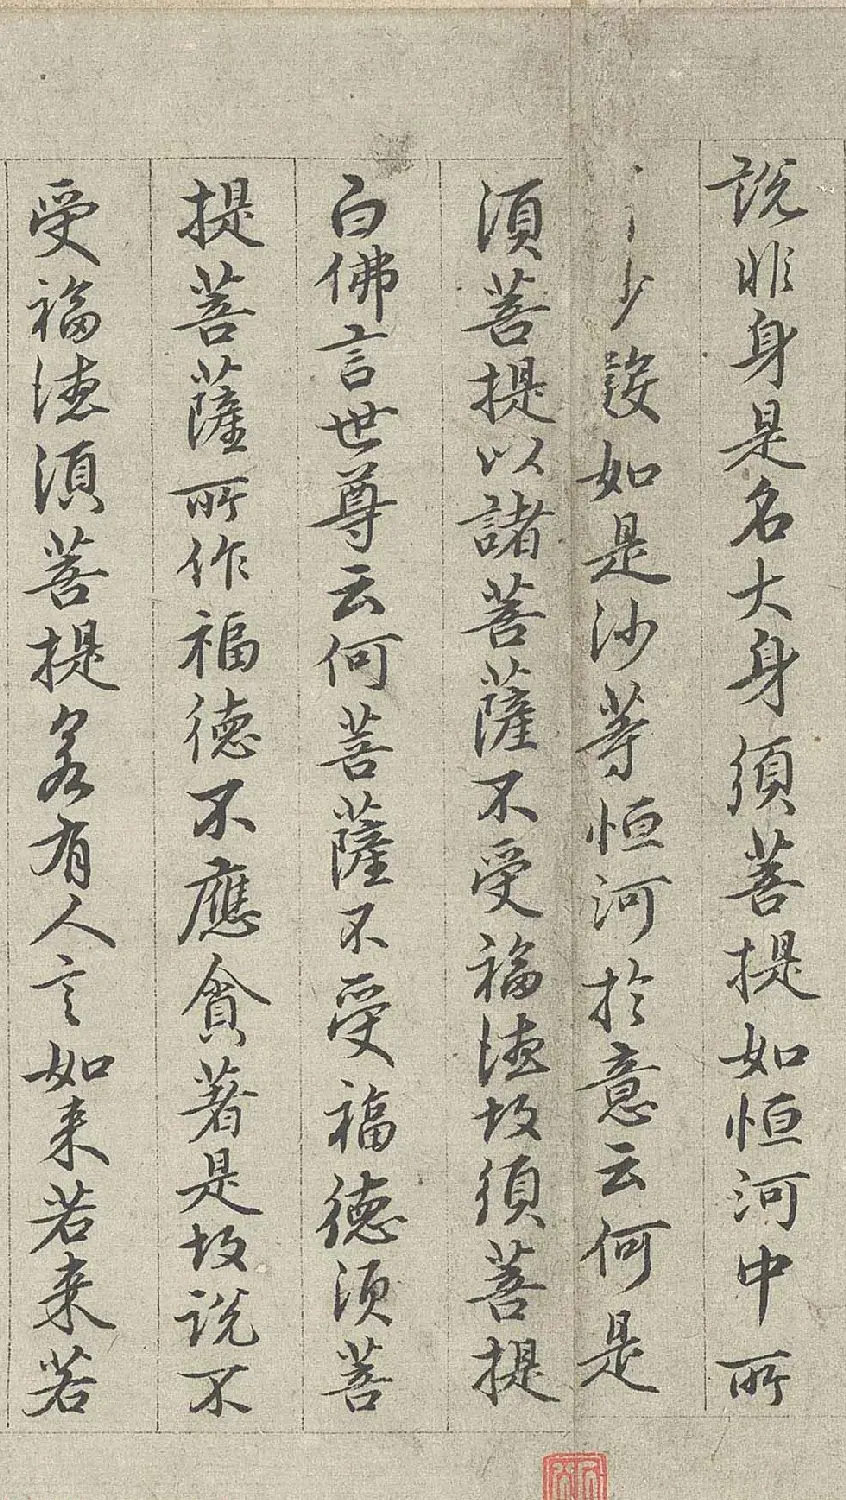 説非身是名大身須菩提如恒河中所
沙數如是沙等恒河於意云何是
須菩提以諸菩薩不受福德故須菩提
白佛言世尊云何菩薩不受福德須菩
提菩薩所作福德不應貪著是故説不
受福德須菩提若有人言如来若来若